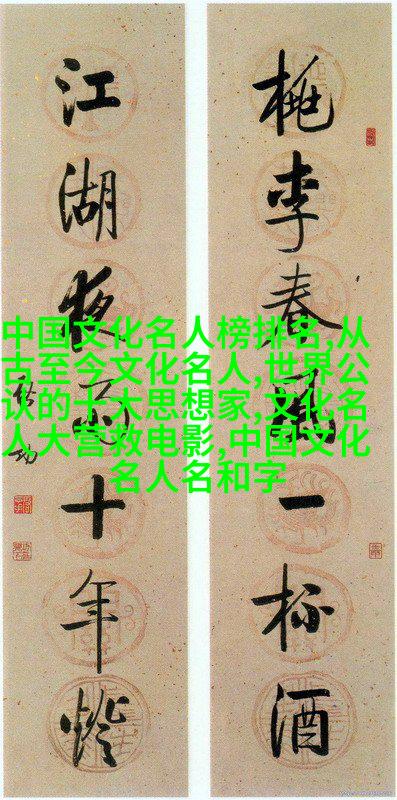 桃李春風一杯酒
江湖夜雨十年燈
中国文化名人榜排名,从
古至今文化名人,世界公
认的十大思想家,文化名
人大营救电影,中国文化
名人名和字